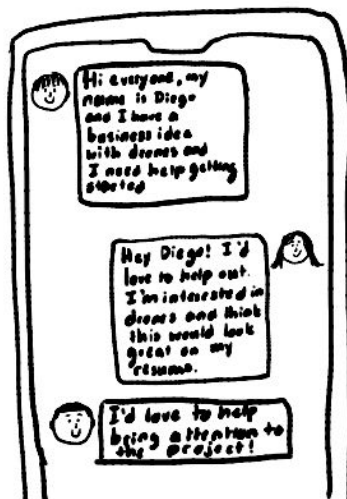 Hi everyone, my
name is Diego
and I have a
business idea
with drones and
I need help getting
started
Hey Diego! I'd
love to help out.
I'm interested in
drones and think
this would look
great on my
resume.
I'd love to help
bring attention to
the project!